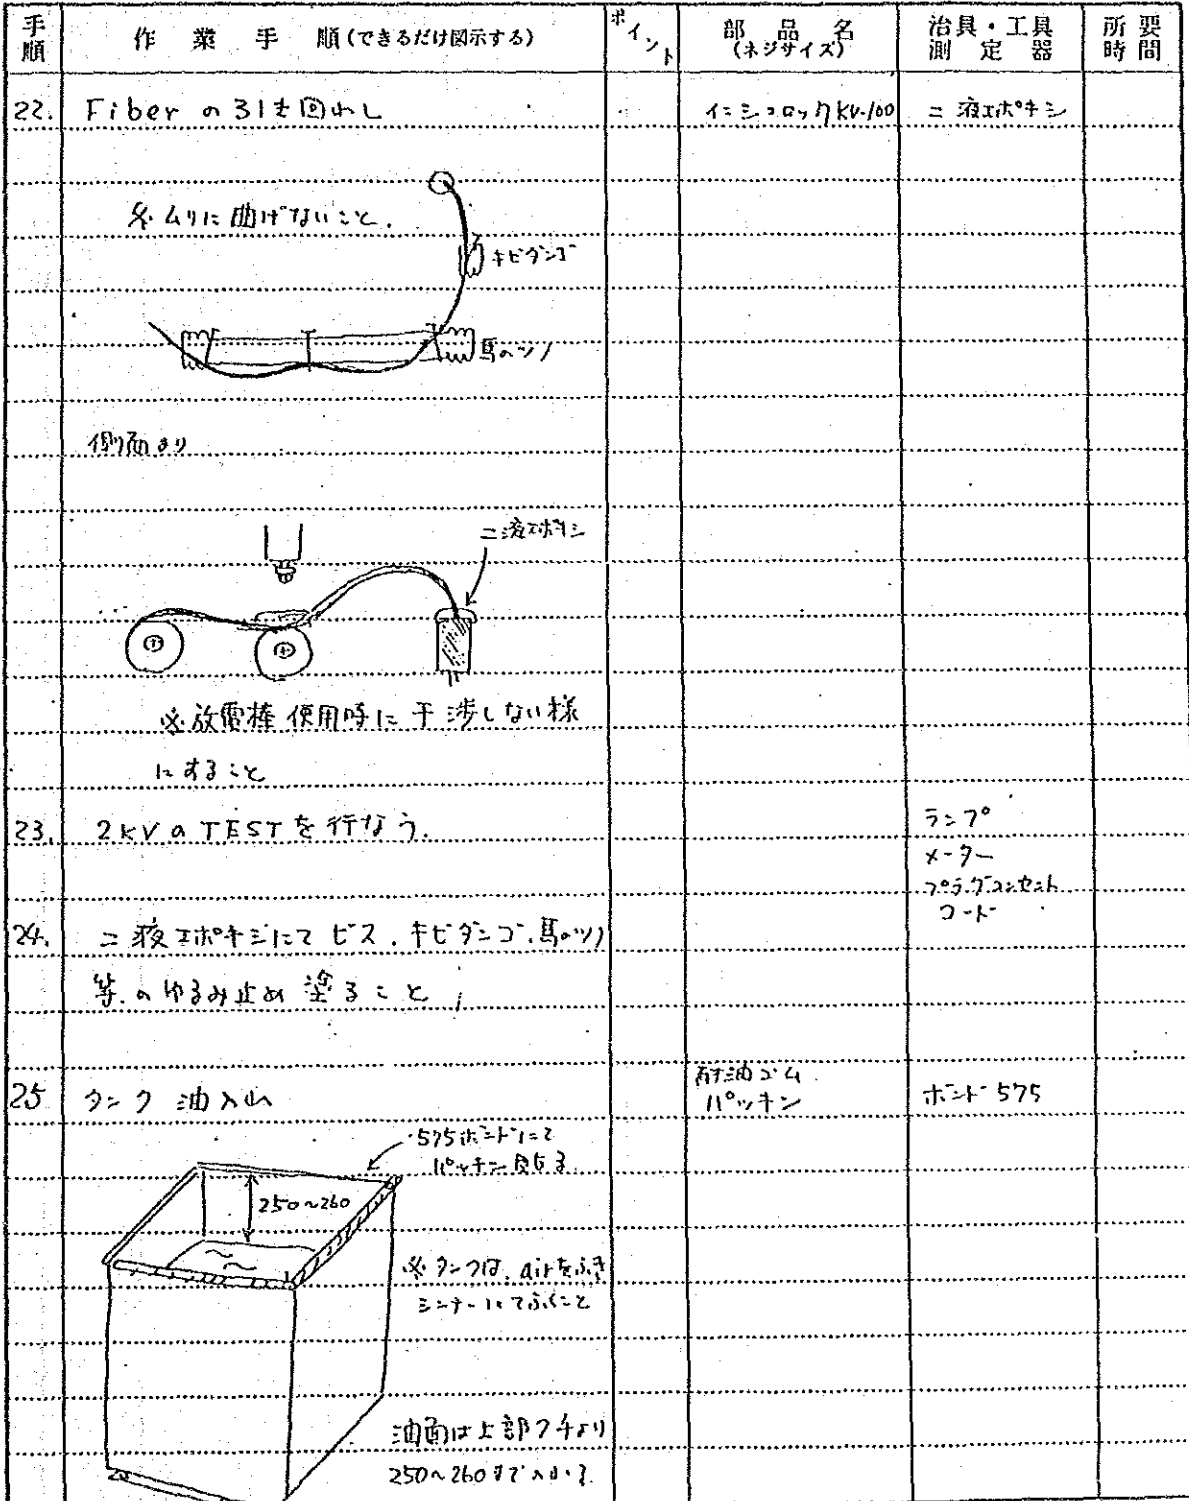 手順 作業手順(できるだけ図示する) ポイント 部品名(ネジサイズ) 治具・工具測定器 所要時間
22. Fiber の引き回わし インシュロック KV-100 二液エポキシ
※ムリに曲げないこと.
キビダンゴ
馬のツノ
側面より
二液エポキシ
※放電棒使用時に干渉しない様
にすること
23. 2KVのTESTを行なう. ランプ
メーター
プラグコンセント
コード
24. 二液エポキシにてビス.キビダンゴ.馬のツノ
等.のゆるみ止め塗ること
25 タンク油入れ 耐油ゴム ボンド575
パッキン
575ボンドにて
パッキン貼る
250~260
※タンクは.airをふき
シンナーにてふくこと
油面は上部フチより
250~260まで入れる.